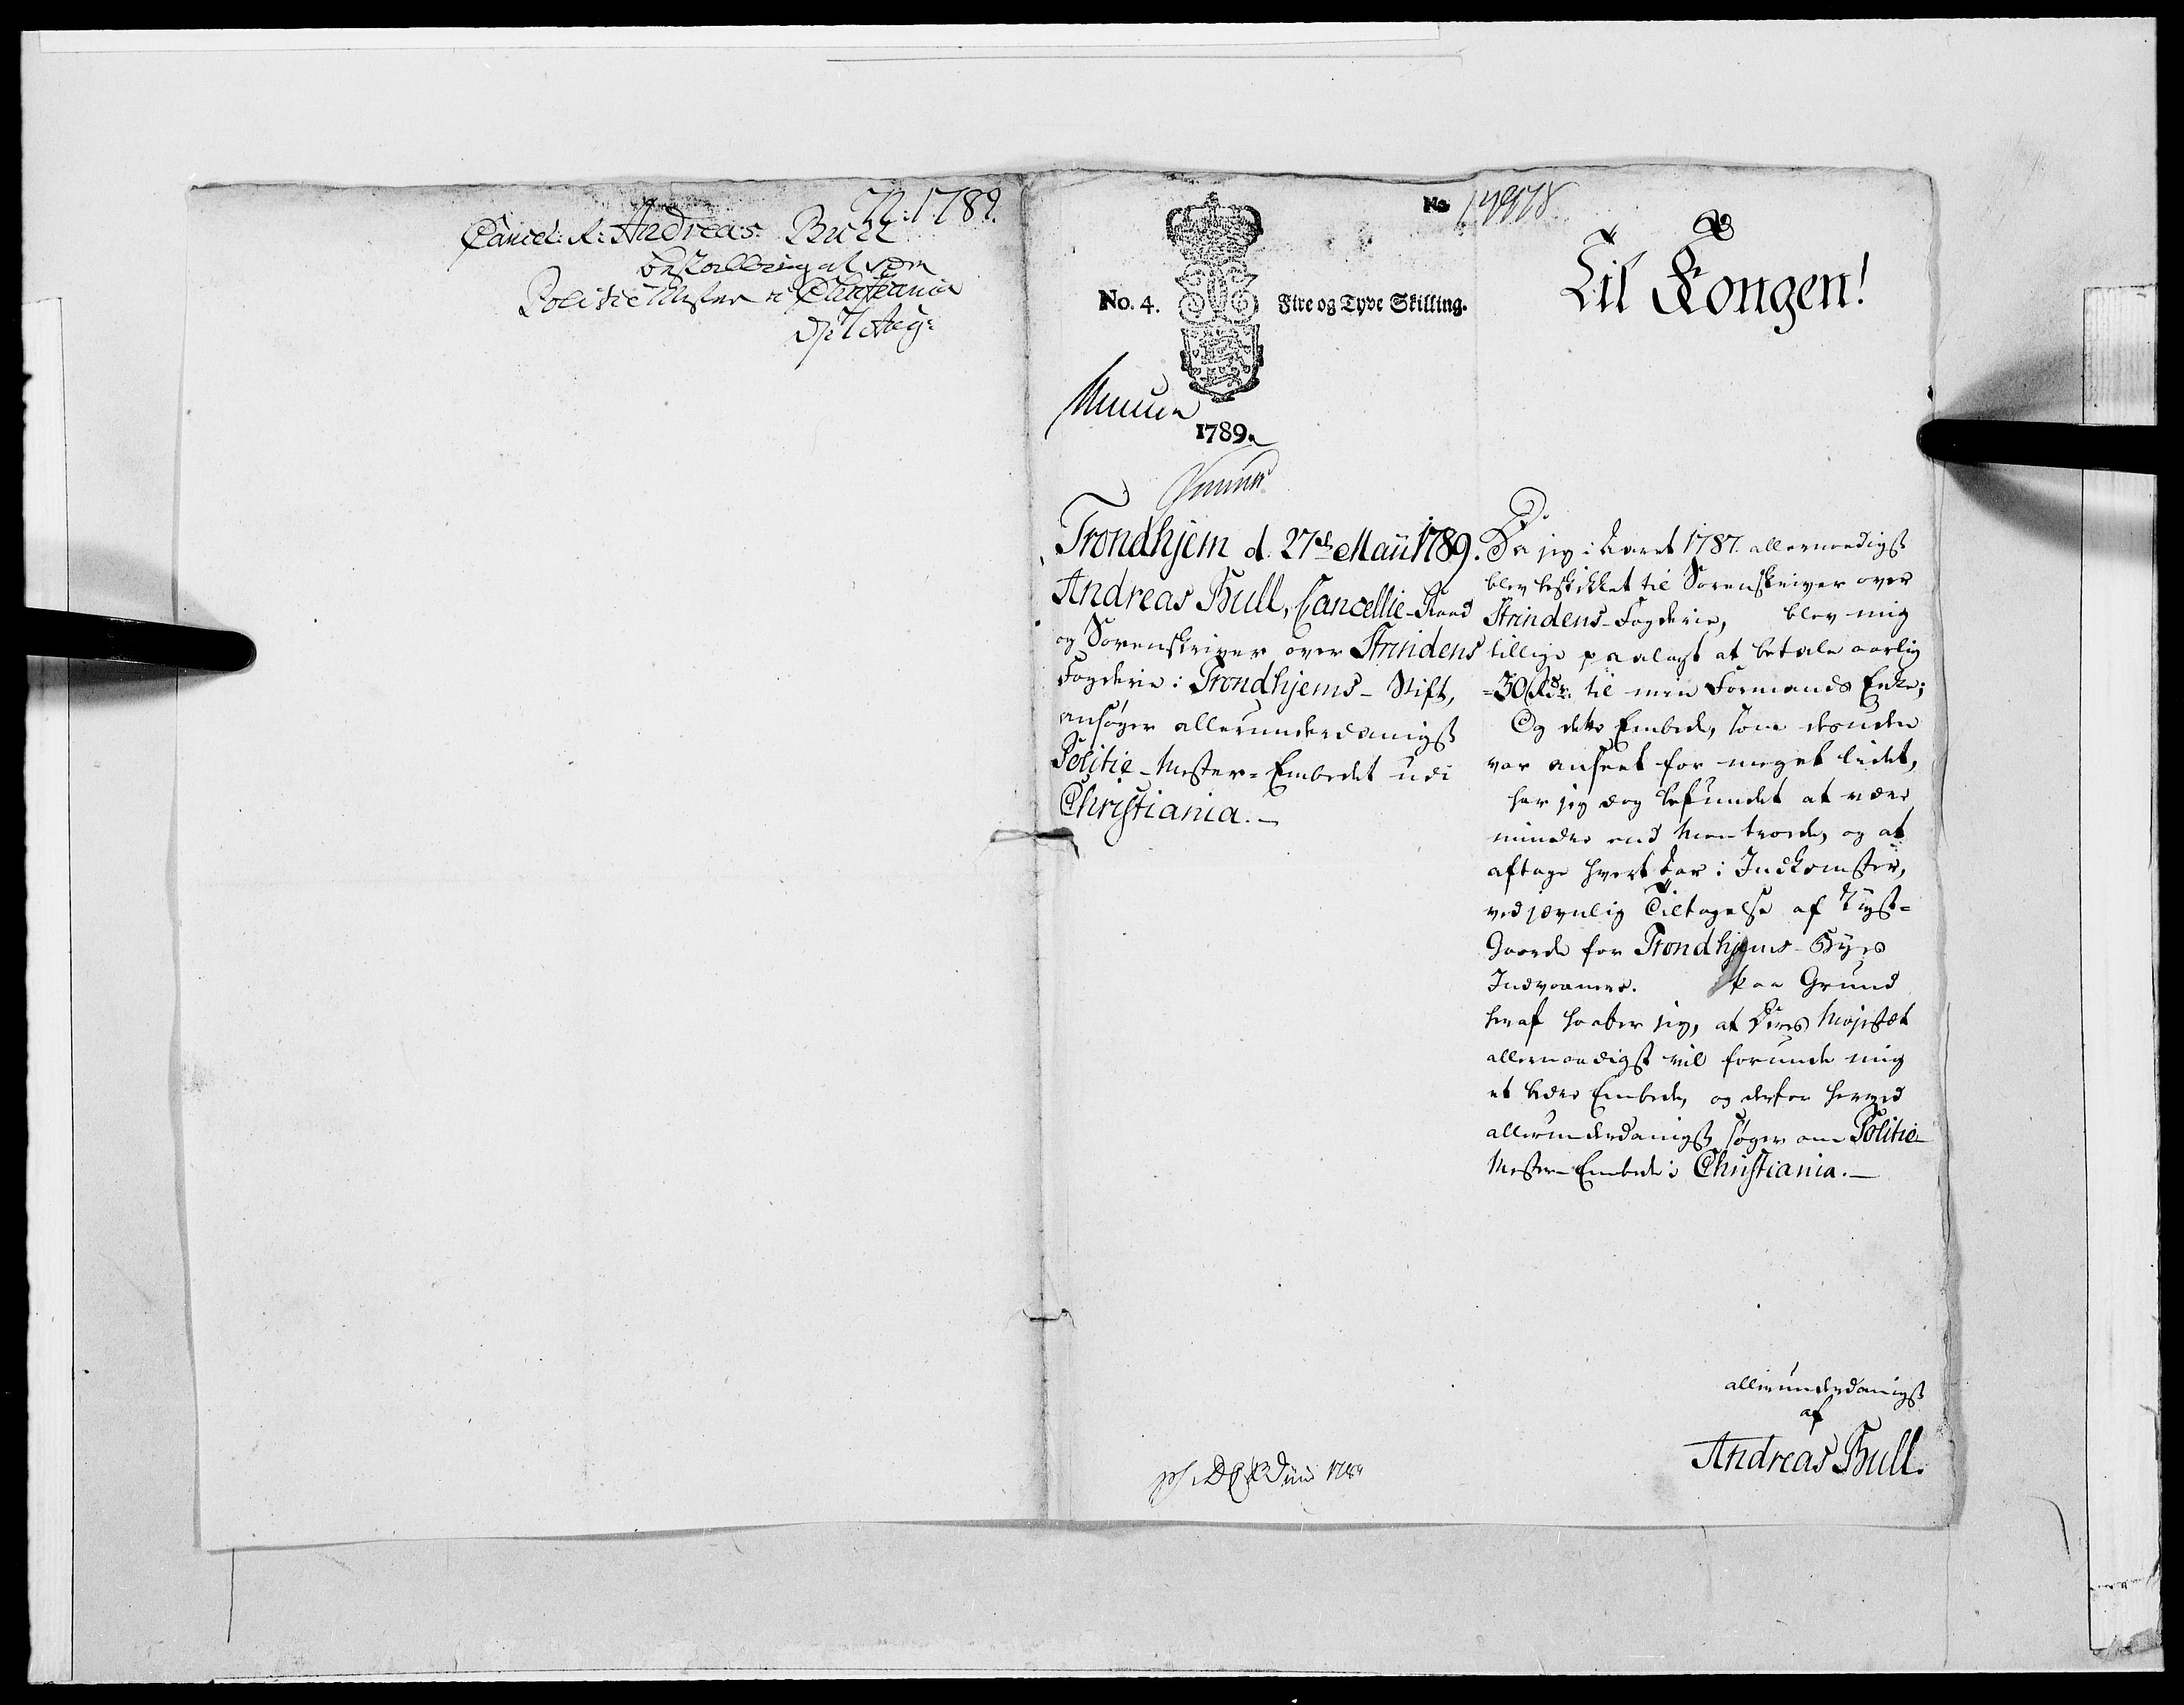 N: 1789.
Cancel: R: Andreas Bull
bestalling at være
Politie Mester i Christiania
d: 7 Aug:
No 14978
No. 4. Fire og Tyve Skilling.
1789.
Til Kongen!
Trondhjem d. 27de Maii 1789.
Andreas Bull, Cancellie-Raad
og Sorenskriver over Strindens
Fogderie i Trondhjems-Stift,
ansøger allerunderdanigst
Politie-Mester-Embedet udi
Christiania.
Da jeg i Aaret 1787. allernaadigst
blev beskikket til Sorenskriver over
Strindens-Fogderie, blev mig
tillige paalagt at betale aarlig
50 Rdr: til min Formands Enke;
Og dette Embede, som desuden
var anseet for meget lidet,
har jeg dog befundet at være
mindre end man troede, og at
aftage hvert Aar i Indkomster,
ved jævnlig Tiltagelse af Lyst-
Gaarde for Trondhjems-Byes
Indvaanere. Paa Grund
heraf haaber jeg, at Deres Majestæt
allernaadigst vil forunde mig
et bedre Embede, og derfor herved
allerunderdanigst søger om Politie-
Mester-Embedet i Christiania.
allerunderdanigst
af
Andreas Bull.
Junii 1789